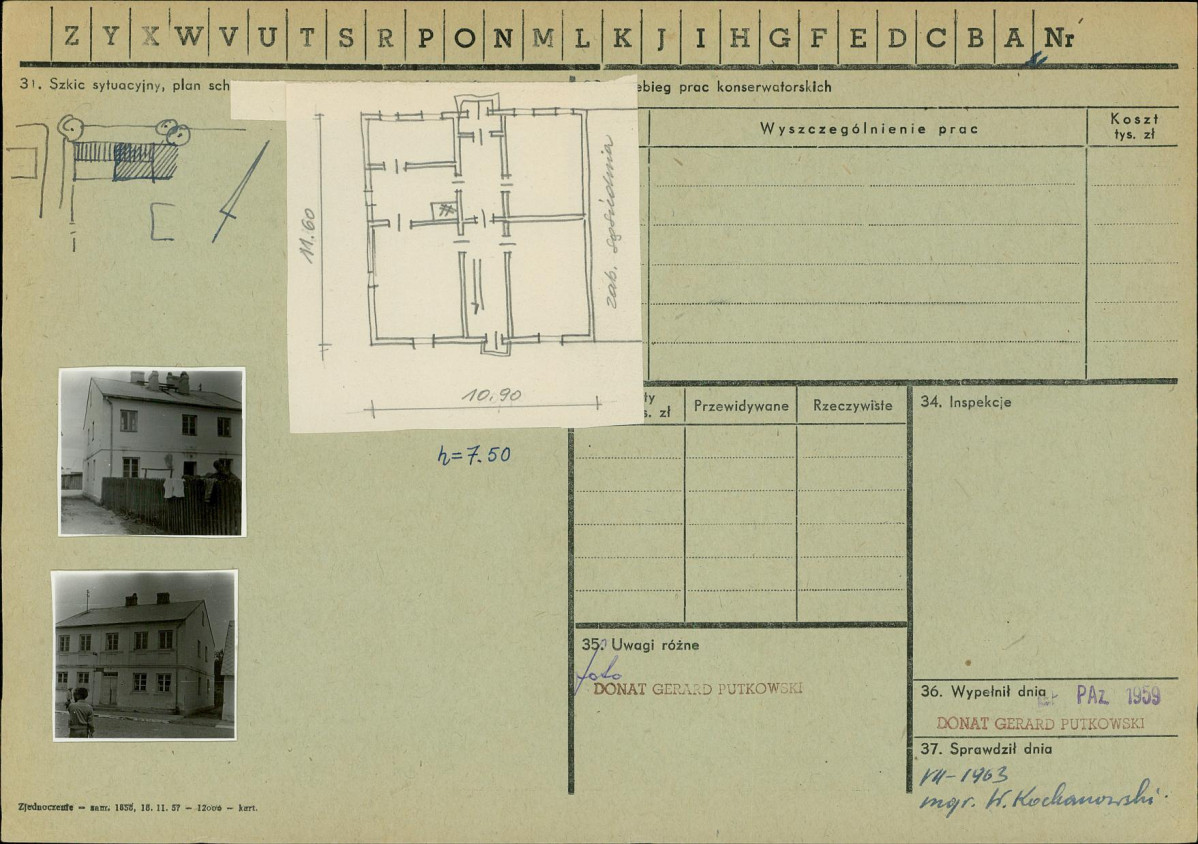 Z Y X W V U T S R P O N M L K J I H G F E D C B A Nr
31. Szkic sytuacyjny, plan sch
ebieg prac konserwatorskich
Wyszczególnienie prac
Koszt
tys. zł
11.60
zab. sąsiednia
10.90
h=7.50
ty
s. zł
Przewidywane
Rzeczywiste
34. Inspekcje
35. Uwagi różne
foto
DONAT GERARD PUTKOWSKI
36. Wypełnił dnia
PAŹ 1959
DONAT GERARD PUTKOWSKI
37. Sprawdził dnia
VII-1963
mgr. W. Kochanowski.
Zjednoczenie — zam. 1858, 18. 11. 57 — 12000 — kart.